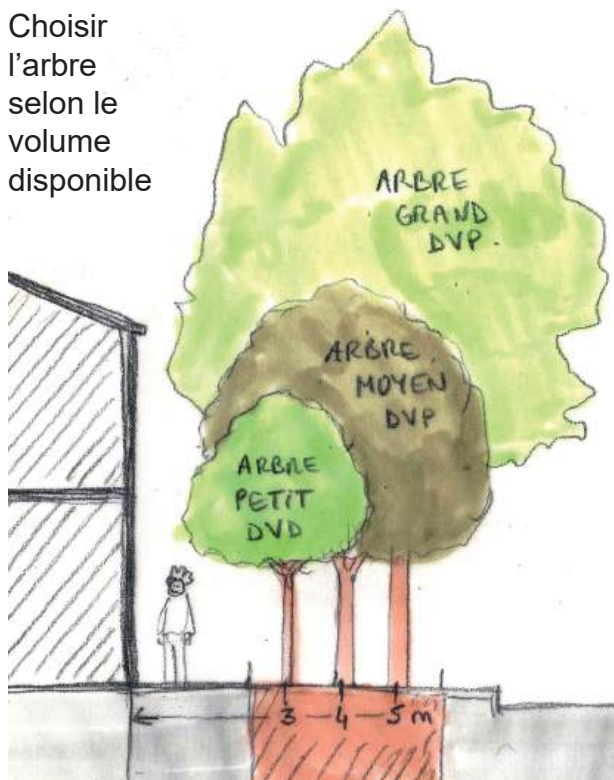 Choisir
l'arbre
selon le
volume
disponible
ARBRE
GRAND
DVP.
ARBRE
MOYEN
DVP
ARBRE
PETIT
DVD
3 – 4 – 5 m